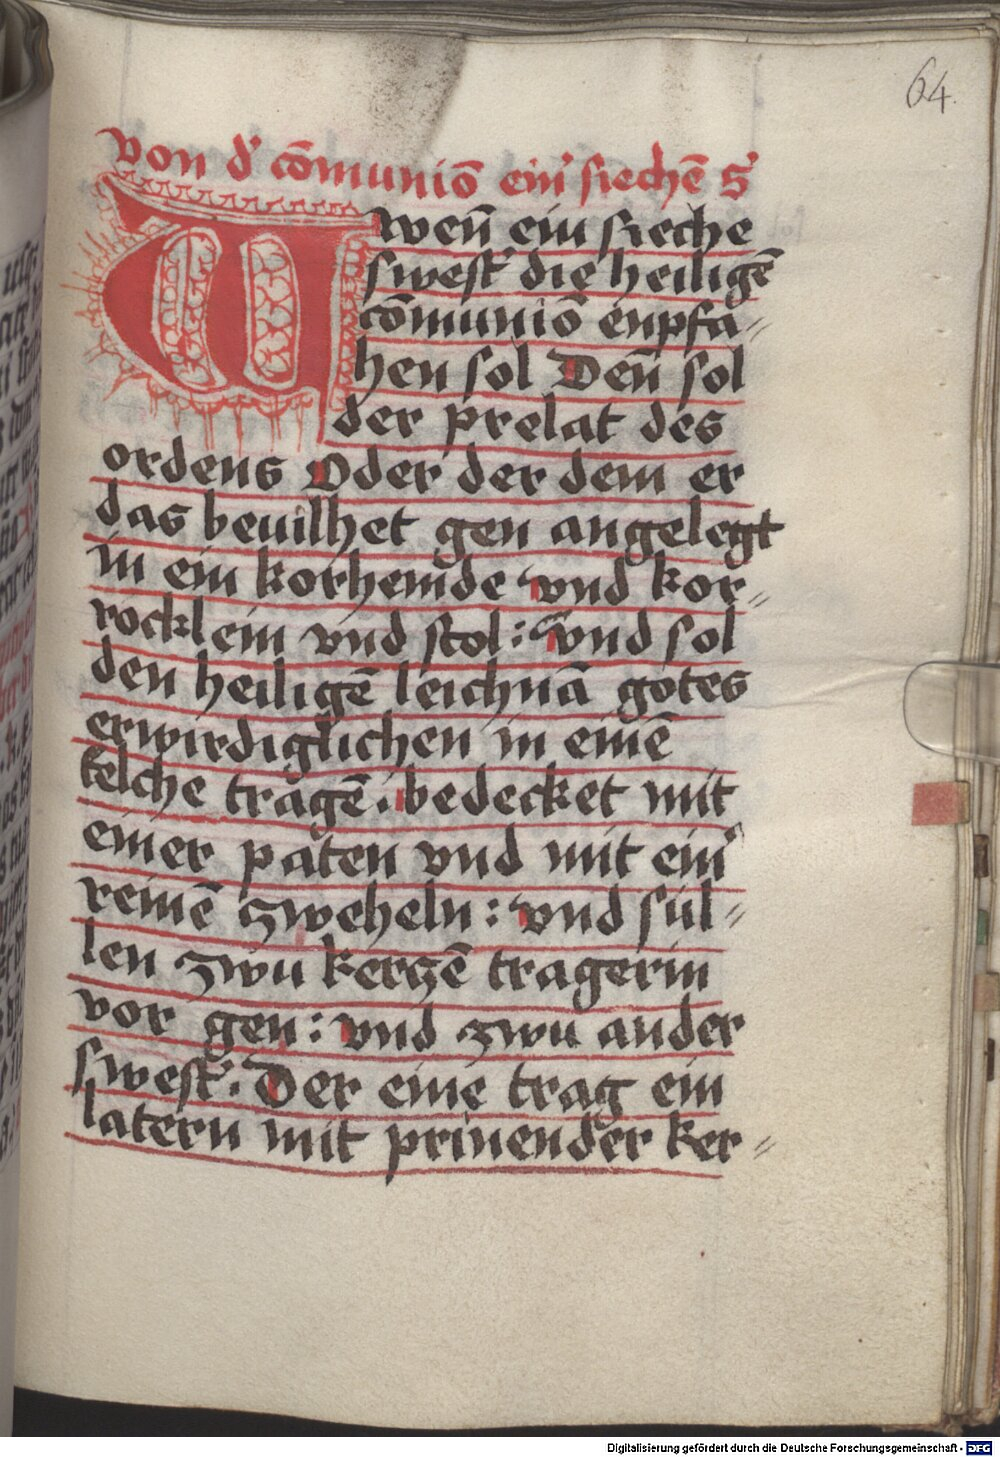 64.
von d' cōmuniō ein' siechē s'
Wwen̄ ein sieche
swest' die heiligē
cōmuniō enpfa=
hen sol Den̄ sol
der prelat des
ordens Oder der dem er
das beuilhet gen angelegt
in ein korhemde vnd kor=
rocklein vnd stol: vnd sol
den heiligē leichnā gotes
erwirdiglichen in einē
kelche tragē. bedecket mit
einer paten vnd mit ein'
reinē zweheln: vnd sül=
len zwu kerczē tragerin
vor gen: vnd zwu ander
swest'. Der eine trag ein
latern mit prinender ker=
Digitalisierung gefördert durch die Deutsche Forschungsgemeinschaft - DFG